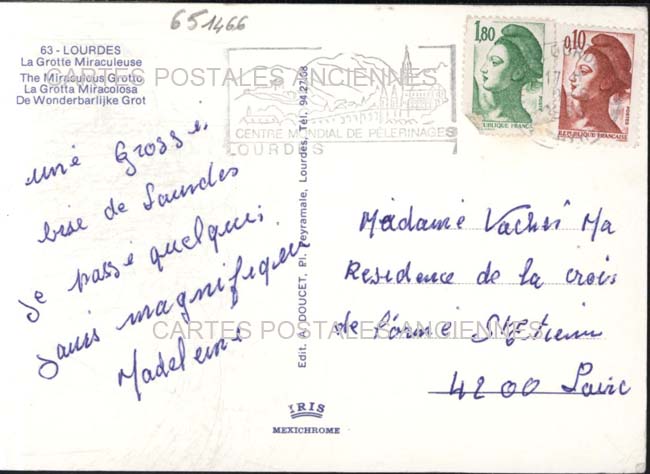 651466
63 - LOURDES
La Grotte Miraculeuse
The Miraculous Grotto
La Grotta Miracolosa
De Wonderbarlijke Grot
CARTES POSTALES ANCIENNES
CENTRE MONDIAL DE PÈLERINAGES
LOURDES
1,80
0,10
REPUBLIQUE FRANÇAISE
POSTES
une Grosse
bise de Lourdes
Je passe quelques
jours magnifiques
Madeleine
Edit. A. DOUCET, Pl. Peyramale, Lourdes, Tél. 94.27.08
Madame
Residence de la crois
de l'orme St Etienne
4200 Loire
CARTES POSTALES ANCIENNES
IRIS
MEXICHROME